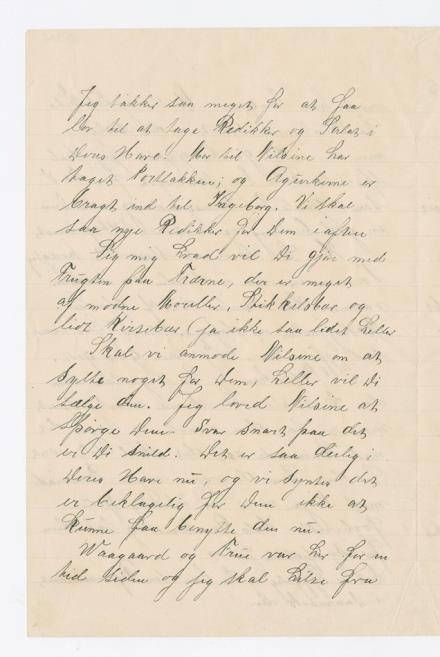 Jeg takker saa meget for at faa
lov til at tage Redikker og Salat i
Deres Have. Mor til Nilsine har
taget Portlakken; og Agurkerne er
bragt ind til Ingeborg. Vi skal
saa nye Redikker for Dem i aften
Sig mig hvad vil Di gjøre med
Frugten paa Træerne, der er meget
af modne Moreller, Stikkelsbær og
lidt Kirsebær (ja ikke saa lidet heller
Skal vi anmode Nilsine om at
sylte noget for Dem, heller vil Di
sælge den. Jeg loved Nilsine at
spørge Dem. Svar snart paa det
er Di snild. Det er saa deilig i
Deres Have nu, og vi syntes det
er beklagelig for Dem ikke at
kunne faa benytte den nu.
Waagaard og Frue var her for en
tid siden og jeg skal hilse fra